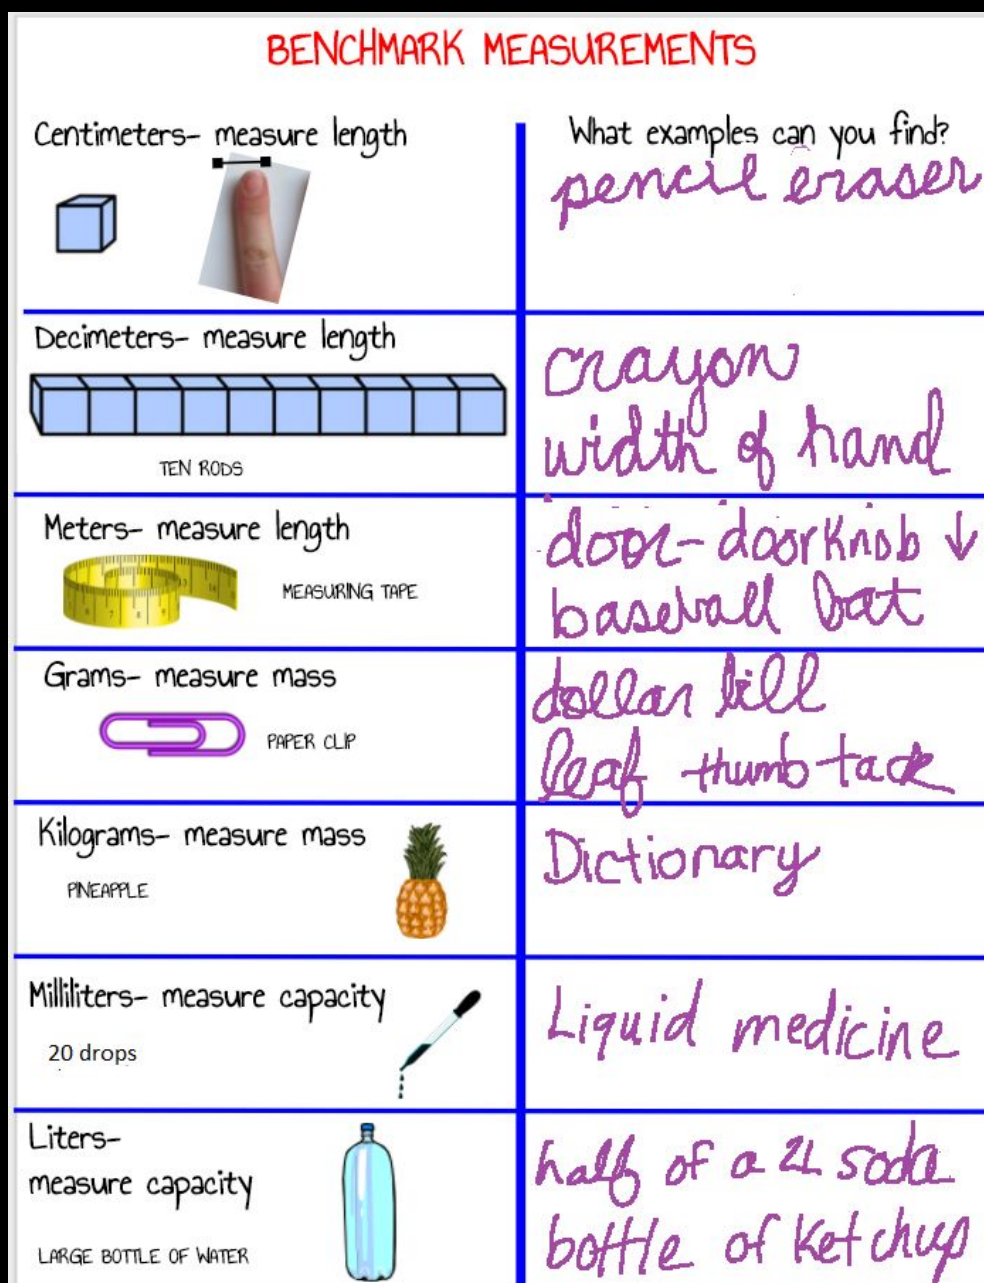 BENCHMARK MEASUREMENTS
Centimeters- measure length
What examples can you find?
pencil eraser
Decimeters- measure length
TEN RODS
crayon
width of hand
Meters- measure length
MEASURING TAPE
door-doorknob ↓
baseball bat
Grams- measure mass
PAPER CLIP
dollar bill
leaf thumb tack
Kilograms- measure mass
PINEAPPLE
Dictionary
Milliliters- measure capacity
20 drops
Liquid medicine
Liters-
measure capacity
LARGE BOTTLE OF WATER
half of a 2L soda
bottle of Ketchup